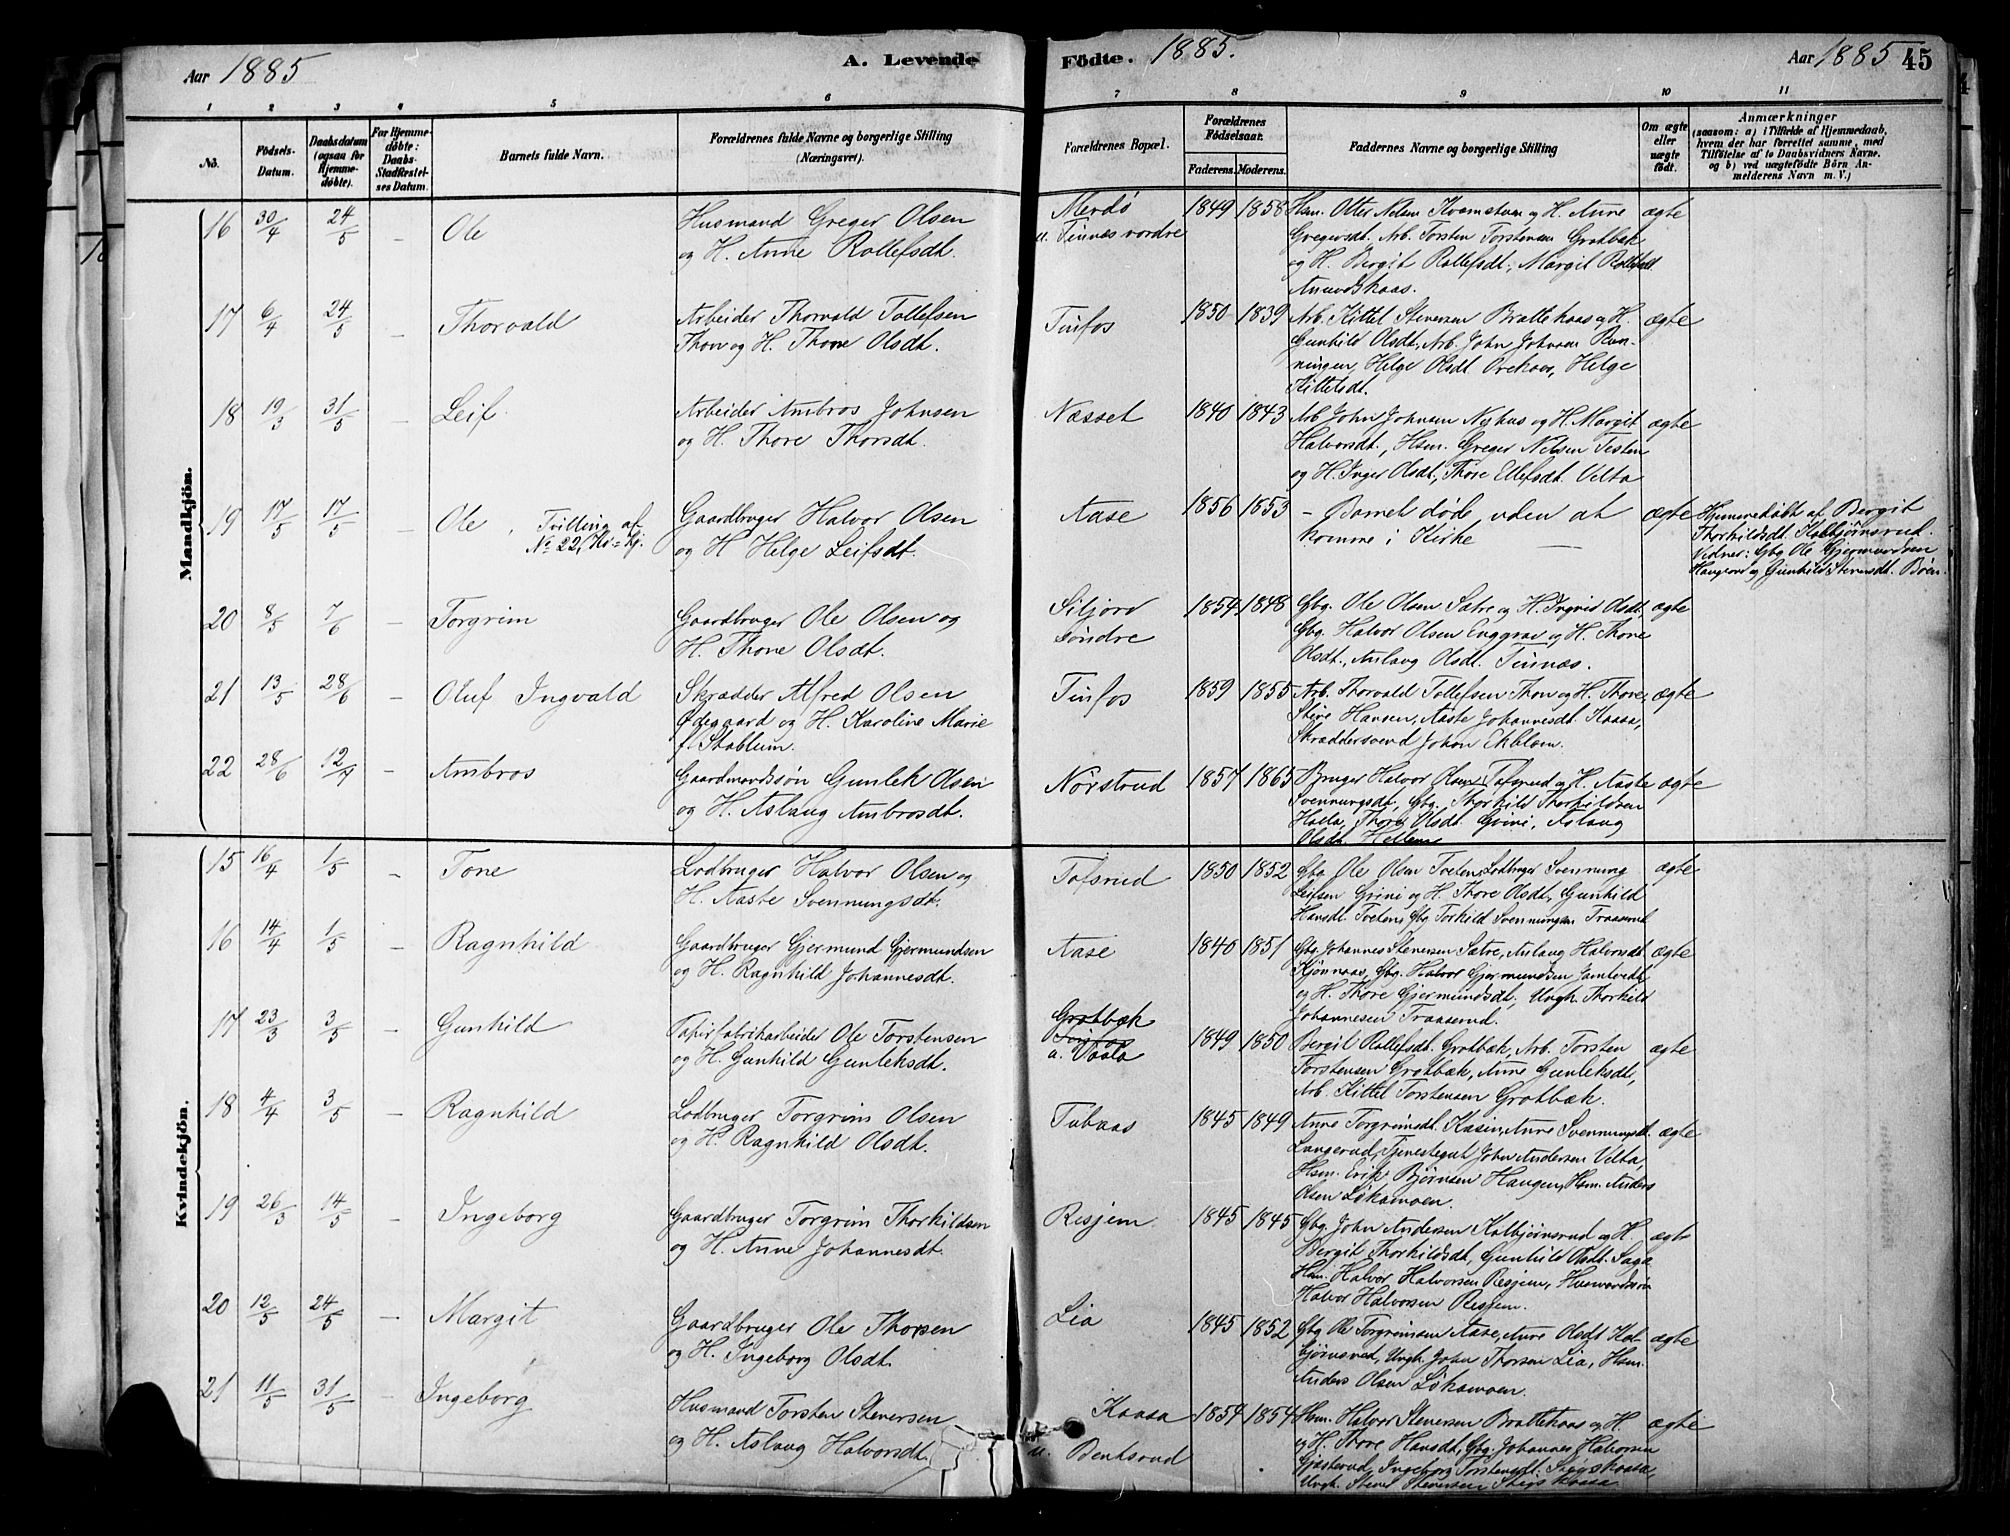 Aar 1885
A. Levende
Födte. 1885.
Aar 1885 45
1 2 3 4 5 6 7 8 9 10 11
No.
Födsels-Datum.
Daabsdatum (ogsaa for Hjemmedöbte).
For Hjemmedöbte: Daabs-Stadfæstelses Datum.
Barnets fulde Navn.
Forældrenes fulde Navne og borgerlige Stilling (Næringsvei).
Forældrenes Bopæl.
Forældrenes Födselsaar. Faderens. Moderens.
Faddernes Navne og borgerlige Stilling
Om ægte eller uægte födt.
Anmærkninger
(saasom: a) i Tilfælde af Hjemmedaab,
hvem der har forrettet samme, med
Tilföielse af to Daabsvidners Navne.
og b) ved uægtefödte Börn An-
melderens Navn m. V.)
Mandkjön.
16 30/4 24/5 – Ole
Husmand Greger Olsen
og H. Anne Rollefsdt.
Merdö
u. Tinnes nordre
1849 1858
Hsm. Otter Nelsen Kvamstuen og H. Anne
Gregersdt. Arb. Torsten Torstensen Grotbæk
og H. Bergit Rollefsdt., Margit Rollefsdt
ægte
17 6/4 24/5 – Thorvald
Arbeider Thorvald Tollefsen
Thon og H. Thone Olsdt.
Tinfos
1850 1839
Arb. Kittel Stenersen Brattekaas og H.
Gunhild Olsdt., Arb. John Johnsen Ron-
ningen, Helge Olsdt Orekaas, Helge
Kittelsdt.
ægte
18 19/3 31/5 – Leif.
Arbeider Ambros Johnsen
og H. Thore Thorsdt.
Næsset
1840 1843
Arb. John Johnsen Nyhus og H. Margit
Halvorsdt., Hsm. Greger Nelsen Testen
og H. Inger Olsdt, Thore Ellefsdt. Velta
ægte
19 17/5 17/5 – Ole, Tvilling af
No 22, Kv.=Kj.
Gaardbruger Halvor Olsen
og H Helge Leifsdt.
Aase
1856 1853
– Barnet döde uden at
komme i Kirke –
ægte
Hjemmedöbt af Bergit
Thorkildsdt. Kolbjörnsrud.
Vidner: Gbg Ole Gjermundsen
Haugen og Gunhild Stenersdt. Böen.
20 8/5 7/6 – Torgrim
Gaardbruger Ole Olsen og
H. Thone Olsdt.
Siljord
söndre
1854 1848
Gbg. Ole Olsen Sætre og H. Ingrid Olsdt,
Gbg. Halvor Olsen Enggrav og H. Thone
Olsdt., Aslaug Olsdt. Tinnæs.
ægte
21 13/5 28/6 – Oluf Ingvald
Skrædder Alfred Olsen
Ödegaard og H. Karoline Marie
f. Stablum.
Tinfos
1859 1855
Arb. Thorvald Tollefsen Thon og H. Thone,
Stine Hansen, Aaste Johannesdt. Kaasa,
Skræddersvend Johan Ekblom.
ægte
22 28/6 12/7 – Ambros
Gaardmandssön Gunlek Olsen
og H. Aslaug Ambrosdt.
Nörstrud
1857 1865
Bruger Halvor Olsen Tofsrud og H. Aaste
Svennungsdt, Gbg. Thorkild Thorkildsen
Holla, Thore Olsdt. Grini, Aslaug
Olsdt. Hellem
ægte
Kvindekjön.
15 16/4 1/5 – Tone
Lodbruger Halvor Olsen og
H. Aaste Svennungsdt.
Tofsrud
1850 1852
Gbg Ole Olsen Tveten, Lodbruger Svennung
Leifsen Grini og H. Thore Olsdt, Gunhild
Hansdt Tveten, Gbg Torkild Svennungsen Traaserud
ægte
16 14/4 1/5 – Ragnhild
Gaardbruger Gjermund Gjermundsen
og H. Ragnhild Johannesdt.
Aase
1840 1851
Gbg Johannes Stenersen Sætre, Aslaug Halvorsdt
Kjönnaas, Gbg. Halvor Gjermundsen Jamtvedt
og H. Thore Gjermundsdt, Ungk. Thorkild
Johannesen Traaserud.
ægte
17 23/3 3/5 – Gunhild
Papirfabrikarbeider Ole Torstensen
og H. Gunhild Gunleksdt.
Grotbæk
Tinfos
a. Vaala
1849 1850
Bergit Rollefsdt. Grotbæk, Arb. Torsten
Torstensen Grotbæk, Anne Gunleksdt,
Arb. Kittel Torstensen Grotbæk.
ægte
18 4/4 3/5 – Ragnhild
Lodbruger Torgrim Olsen
og H. Ragnhild Olsdt.
Tubaas
1845 1849
Anne Torgrimsdt. Kasen, Anne Svennungsdt.
Langerud, Tjenestegut John Andersen Velta,
Hsm. Erik Björnsen Haugen, Hsm. Anders
Olsen Lökamoen.
ægte
19 26/3 14/5 – Ingeborg
Gaardbruger Torgrim Thorkildsen
og H. Anne Johannesdt.
Resjem.
1845 1845
Gbg. John Andersen Kolbjörnsrud og H.
Bergit Thorkildsdt, Gunhild Olsdt. Saga
Hsm. Halvor Halvorsen Resjem, Husmandssön
Halvor Halvorsen Resjem.
ægte
20 12/5 24/5 – Margit
Gaardbruger Ole Thorsen
og H. Ingeborg Olsdt.
Lia
1845 1852
Gbg Ole Torgrimsen Aase, Anne Olsdt Kol-
björnsrud, Ungk. John Thorsen Lia, Hsm.
Anders Olsen Lökamoen.
ægte
21 11/5 31/5 – Ingeborg
Husmand Torsten Stenersen
og H. Aslaug Halvorsdt.
Kaasa
u. Bentsrud
1854 1854
Hsm. Halvor Stenersen Brattekaas og H.
og H. Thore Hansdt, Gbg. Johannes Halvorsen
Gjusterud, Ingeborg Torstensdt. Stigskaasa,
Ungk. Stener Stenersen Stigskaasa
ægte